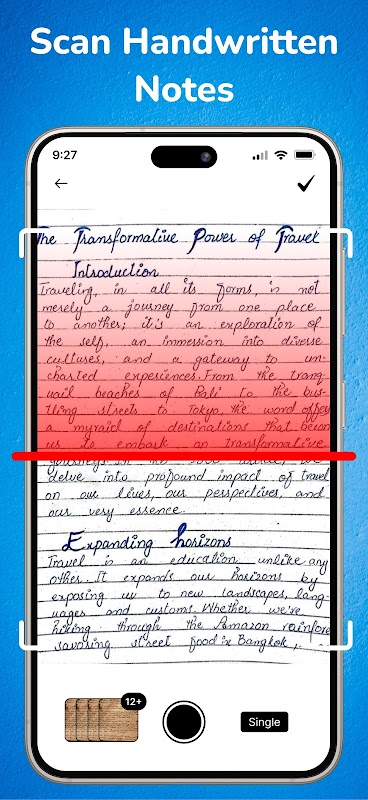 Scan Handwritten
Notes
9:27
The Transformative Power of Travel
Introduction
Traveling, in all its forms, is not
merely a journey from one place
to another; it's an exploration of
the self, an immersion into diverse
cultures, and a gateway to un-
charted experiences. From the tranq-
uail beaches of Bali to the bus-
tling streets to Tokyo, the word offey
a myraid of destinations that becon
us to embark on transformative
journeys. In
delve into profound impact of travel
on our lives, our perspectives, and
our very essence.
Expanding horizons
Travel is an edication unlike any
other. It expands our horizons by
exposing us to new landscapes, lang-
uages and customs. Whether we're
hiking through the Amazon rainfore
savoring street food in Bangkok,
12+
Single